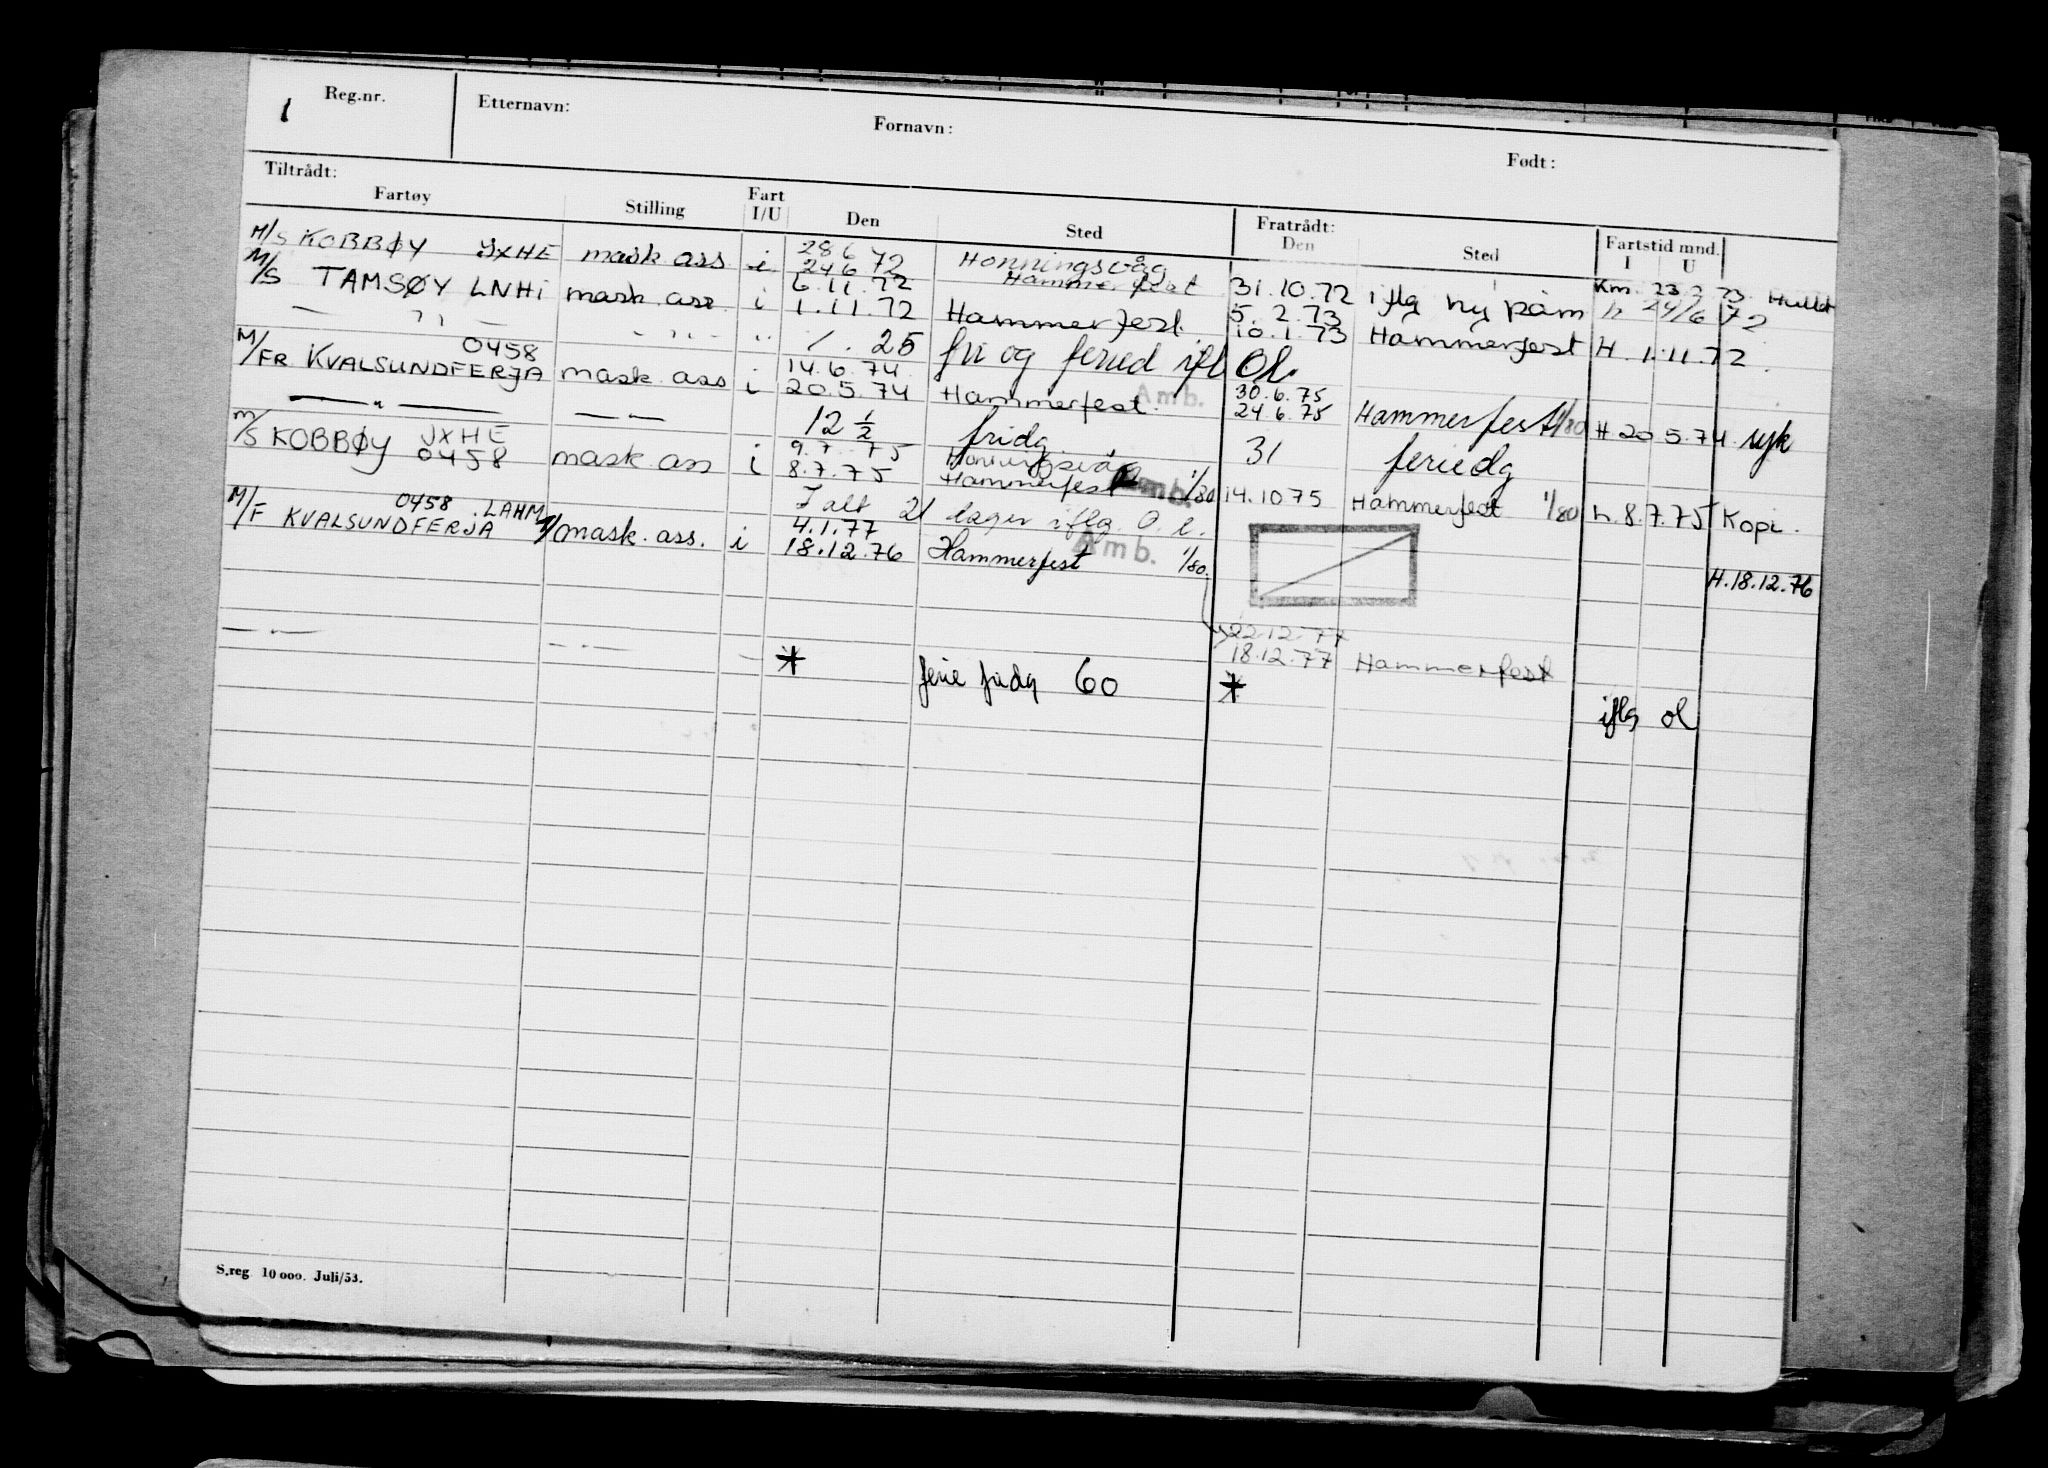 1 Reg.nr. Etternavn: Fornavn: Født:
Tiltrådt: Fratrådt:
Fartøy Stilling Fart I/U Den Sted Den Sted Fartstid mnd. I U
28 6 72 Honningsvåg Km. 23 2 73 Hullet
M/S KOBBØY JXHE mask ass. i 24 6 72 Hammerfest 31.10.72 iflg ny påm h 24/6 72
6.11.72 5.2.73
M/S TAMSØY LNHi mask ass i 1.11.72 Hammerfest 10.1.73 Hammerfest H. 1.11.72.
— " — — " — " 25 fri og feried ifl Ol.
0458 14.6.74 Amb. 30.6.75
M/FR KVALSUNDFERJA mask. ass i 20.5.74 Hammerfest. 24.6.75 Hammerfest 1/80 H 20 5.74 syk
— " — — " — 12 1/2 fridg 31 feriedg
JXHE 9.7.75 Honningsvåg
M/S KOBBØY 0458 mask ass i 8.7.75 Hammerfest Amb. 1/80 14.10 75 Hammerfest 1/80 h.8.7.75 Kopi.
I alt 21 dager iflg. O.l.
0458 LAHM 4.1.77 Amb.
M/F KVALSUNDFERJA mask. ass. i 18.12.76 Hammerfest 1/80.
H.18.12.76
22.12.77
— " — — " — 18.12.77 Hammerfest
* ferie fridg 60 *
iflg ol
S.reg 10 000. Juli/53.